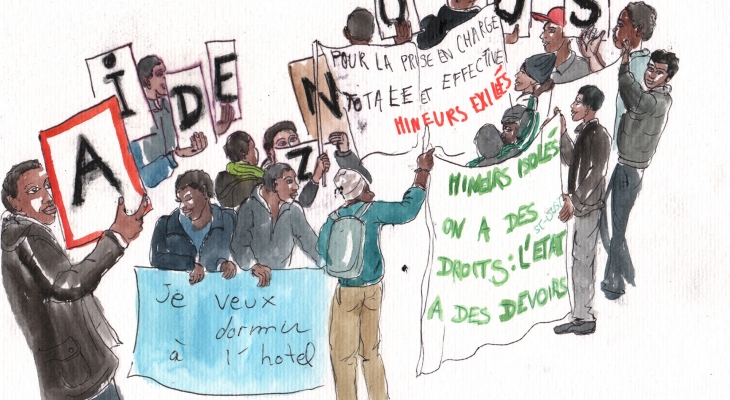 A i D E Z
N O U S
POUR LA PRISE EN CHARGE
TOTALE ET EFFECTIVE
MINEURS EXILÉS
MINEURS ISOLÉS
ON A DES
DROITS : L'ETAT
A DES DEVOIRS
Je veux
dormir
à l'hotel